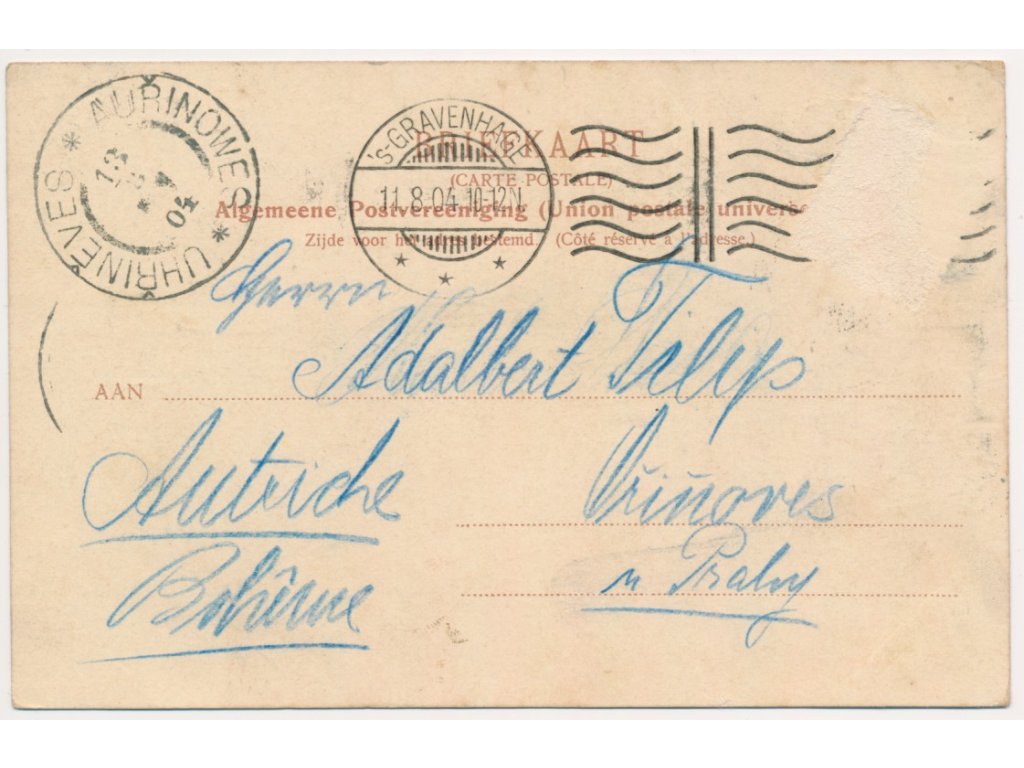 AUŘINOWES * UHŘINĚVES *
13 8 04
's-GRAVENHAGE
11.8.04.10-12N
BRIEFKAART
(CARTE POSTALE)
Algemeene Postvereeniging (Union postale universe
Zijde voor het adres bestemd. (Côté réservé à l'adresse.)
Herrn
AAN Adalbert Filip
Autriche Ouřiňoves
Bohême u Prahy